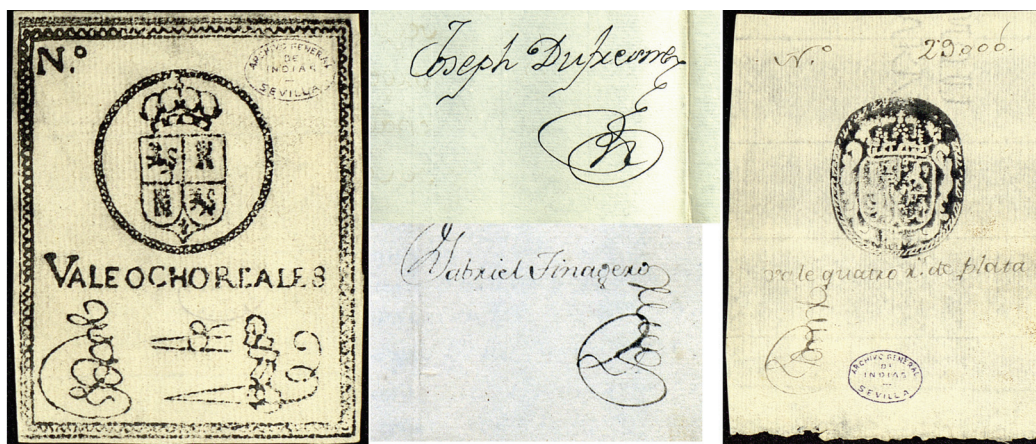 N.º
ARCHIVO GENERAL
DE
INDIAS
SEVILLA
VALE OCHO REALES
Joseph
Gabriel Finagero
N.º 29000.
vale quatro r.s de plata
ARCHIVO GENERAL
DE
INDIAS
SEVILLA